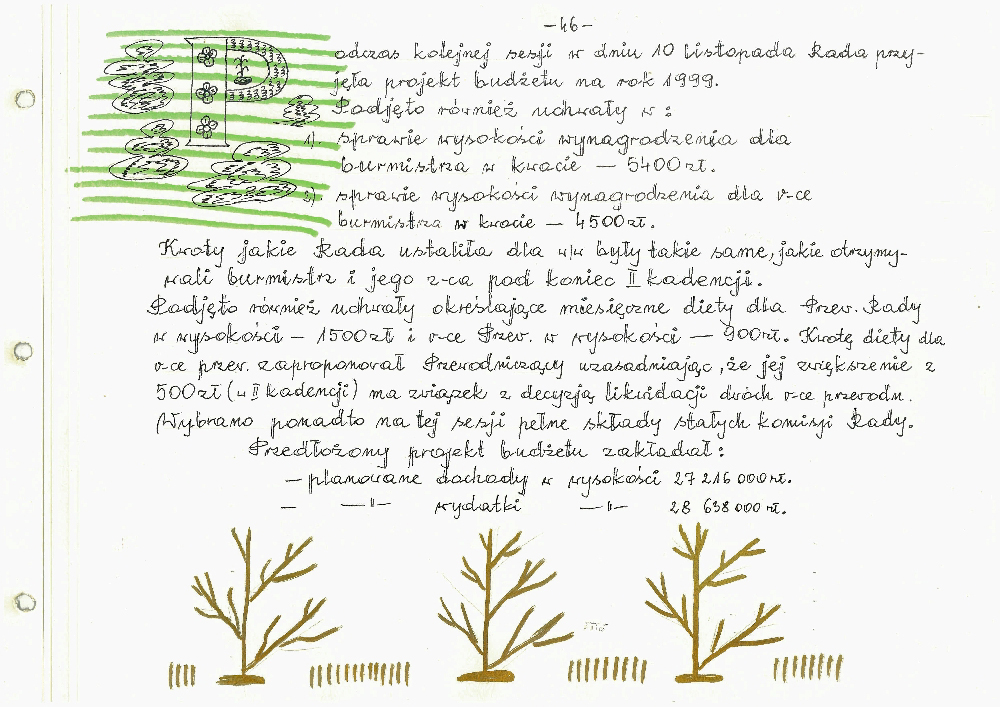 -46-
Podczas kolejnej sesji w dniu 10 listopada Rada przy-
jęła projekt budżetu na rok 1999.
Podjęto również uchwały w:
1). sprawie wysokości wynagrodzenia dla
burmistrza w kwocie — 5400 zł.
2). sprawie wysokości wynagrodzenia dla v-ce
burmistrza w kwocie — 4500 zł.
Kwoty jakie Rada ustaliła dla w/w były takie same, jakie otrzymy-
wali burmistrz i jego z-ca pod koniec II kadencji.
Podjęto również uchwały określające miesięczne diety dla Przew. Rady
w wysokości - 1500 zł i v-ce Przew. w wysokości — 900 zł. Kwotę diety dla
v-ce przew. zaproponował Przewodniczący uzasadniając, że jej zwiększenie z
500 zł (w II kadencji) ma związek z decyzją likwidacji dwóch v-ce przewodn.
Wybrano ponadto na tej sesji pełne składy stałych komisji Rady.
Przedłożony projekt budżetu zakładał:
- planowane dochody w wysokości 27 216 000 zł.
- —"— wydatki —"— 28 638 000 zł.